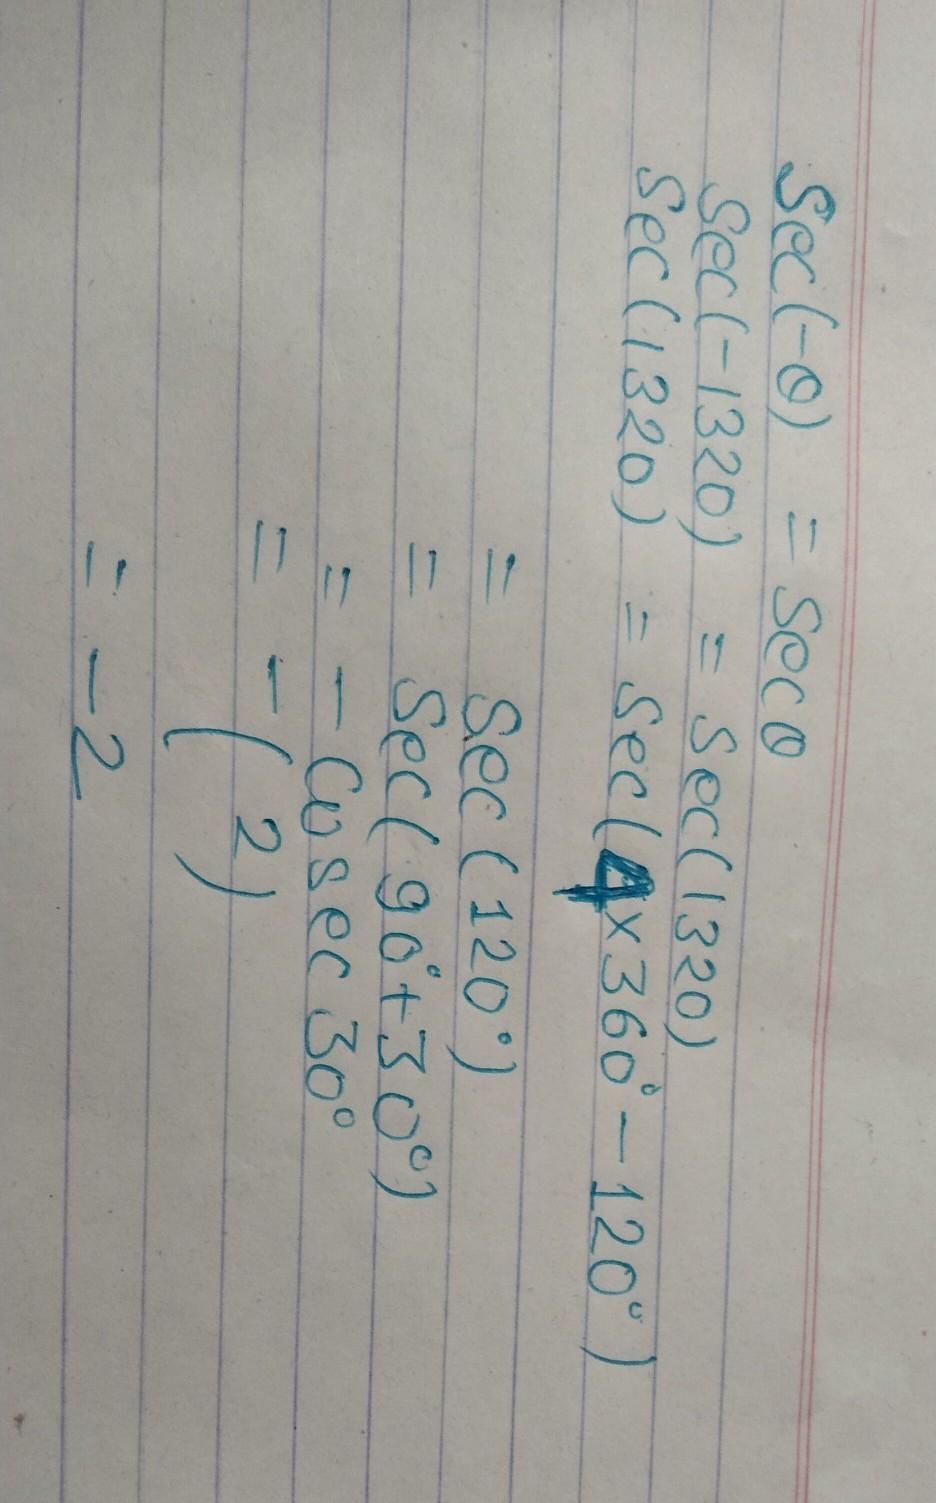 Sec(-θ) = Sec θ
Sec(-1320) = Sec(1320)
Sec(1320) = Sec(4×360°-120°)
= Sec(120°)
= Sec(90°+30°)
= - Cosec 30°
= -(2)
= -2